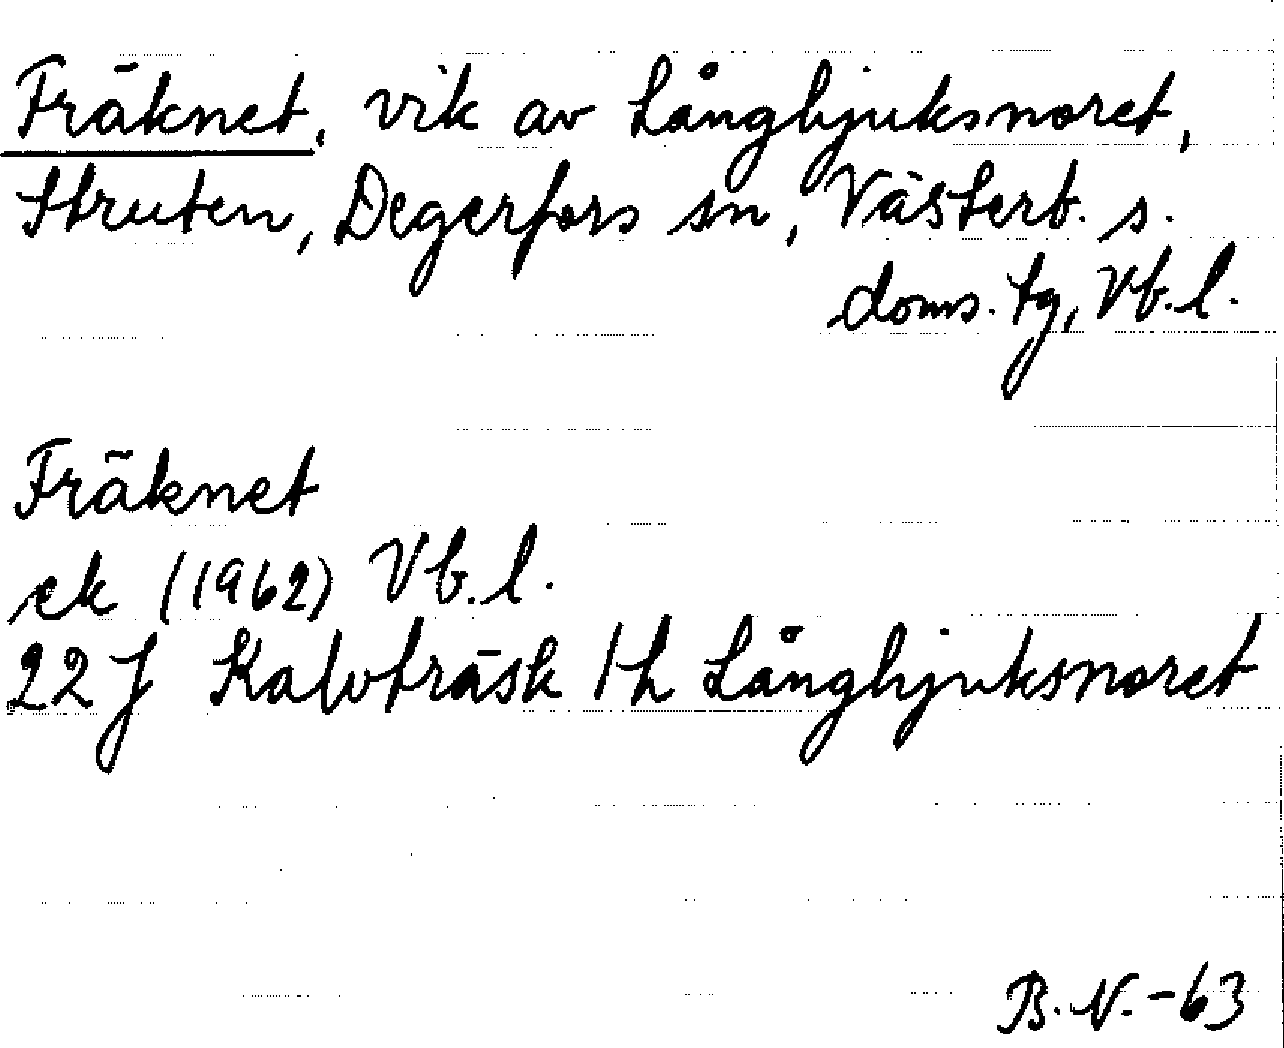 Fräknet, vik av Långhjuksnoret,
Struten, Degerfors sn, Västerb. s.
doms. tg, Vb. l.
Fräknet
ek (1962) Vb. l.
22J Kalvträsk 1h Långhjuksnoret
B.N. -63